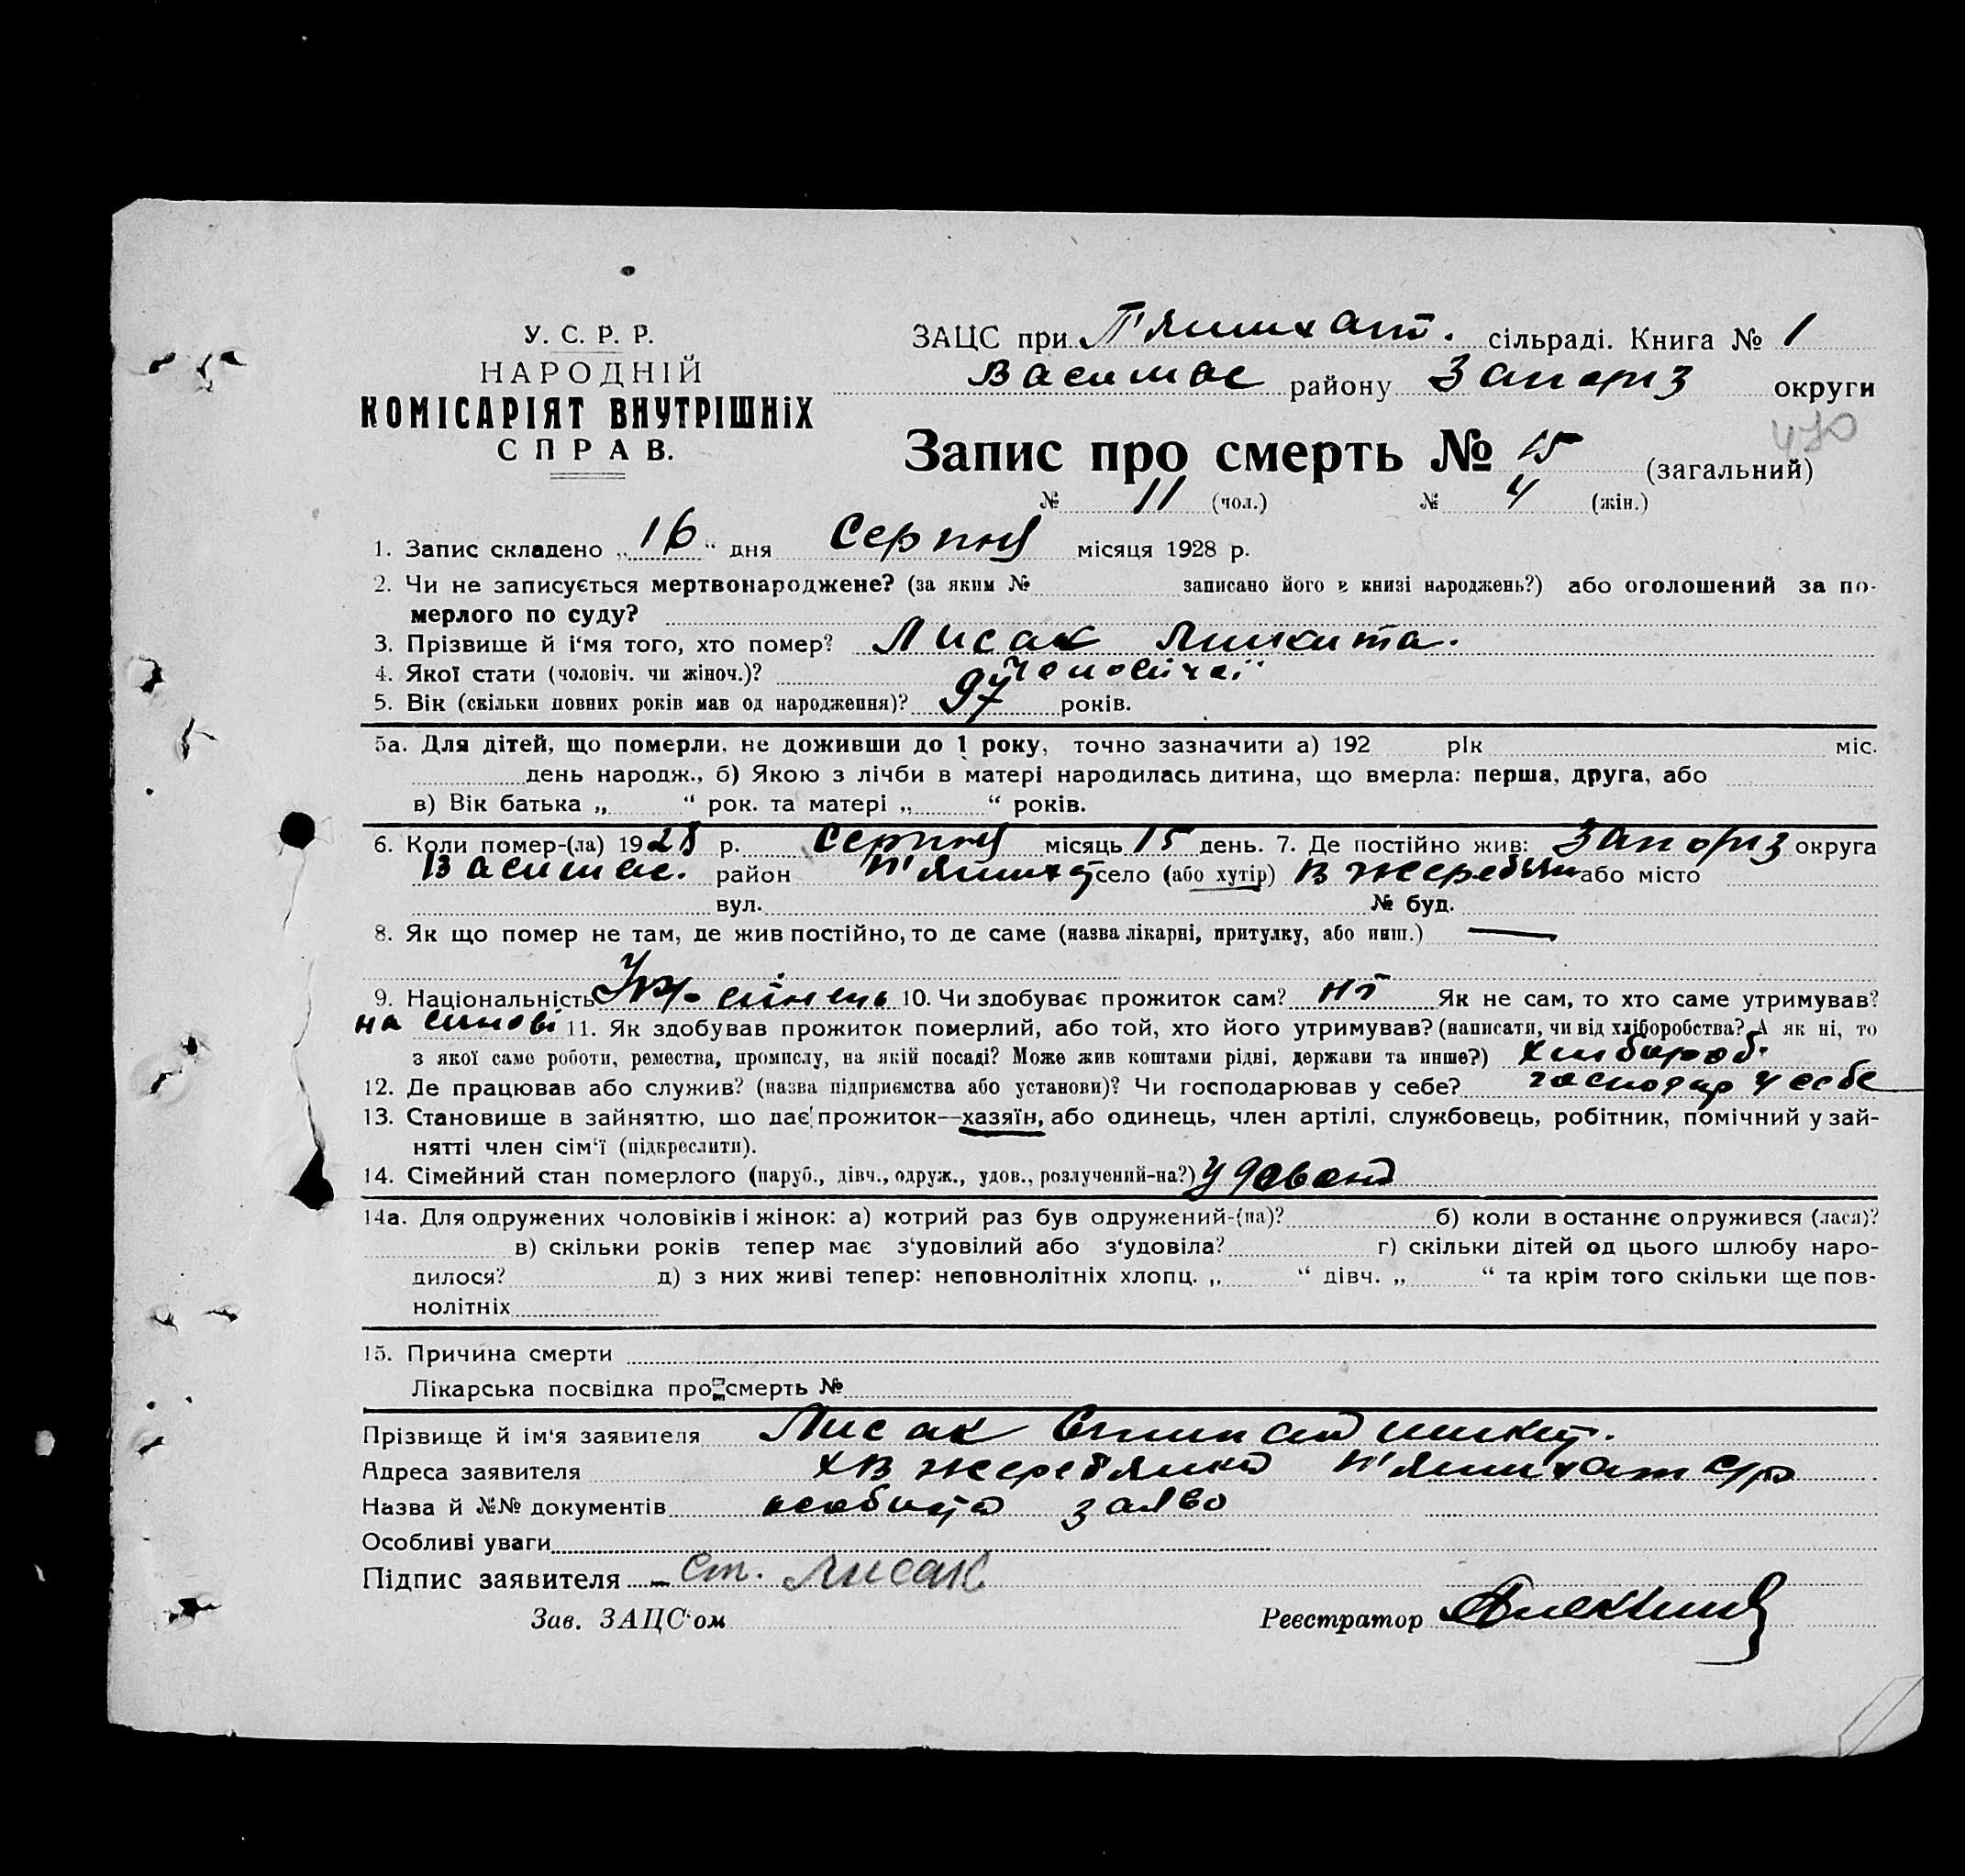 У. С. Р. Р.
НАРОДНІЙ
КОМІСАРІЯТ ВНУТРІШНІХ
СПРАВ.
ЗАЦС при П'ятихат. сільраді. Книга № 1
Василівс району Запоріз округи
470
Запис про смерть № 15 (загальний)
№ 11 (чол.) № 4 (жін.)
1. Запис складено „16“ дня Серпня місяця 1928 р.
2. Чи не записується мертвонароджене? (за яким № записано його в книзі народжень?) або оголошений за по-
мерлого по суду?
3. Прізвище й і‘мя того, хто помер? Лисак Микита.
4. Якої стати (чоловіч. чи жіноч.)? Чоловічої
5. Вік (скільки повних років мав од народження)? 97 років.
5а. Для дітей, що померли, не доживши до 1 року, точно зазначити а) 192 рік міс.
день народж., б) Якою з лічби в матері народилась дитина, що вмерла: перша, друга, або
в) Вік батька „ “ рок. та матері „ “ років.
6. Коли помер-(ла) 1928 р. Серпня місяць 15 день. 7. Де постійно жив: Запоріз округа
Василівс. район П'ятих село (або хутір) В Жеребян або місто
вул. № буд.
8. Як що помер не там, де жив постійно, то де саме (назва лікарні, притулку, або инш.) —
9. Національність Українець 10. Чи здобуває прожиток сам? ні Як не сам, то хто саме утримував?
на синові 11. Як здобував прожиток померлий, або той, хто його утримував? (написати, чи від хліборобства? А як ні, то
з якої саме роботи, ремества, промислу, на якій посаді? Може жив коштами рідні, держави та инше?) хлібороб.
12. Де працював або служив? (назва підприємства або установи)? Чи господарював у себе? господар у себе
13. Становище в зайняттю, що дає прожиток—хазяїн, або одинець, член артілі, службовець, робітник, помічний у зай-
нятті член сім‘ї (підкреслити).
14. Сімейний стан померлого (паруб., дівч., одруж., удов., розлучений-на?)
14а. Для одружених чоловіків і жінок: а) котрий раз був одружений-(на)? б) коли в останнє одружився (лася)?
в) скільки років тепер має з‘удовілий або з‘удовіла? г) скільки дітей од цього шлюбу наро-
дилося? д) з них живі тепер: неповнолітніх хлопц. „ “ дівч. „ “ та крім того скільки ще пов-
нолітніх
15. Причина смерти
Лікарська посвідка про смерть №
Прізвище й ім‘я заявителя Лисак Степан Микит.
Адреса заявителя х В Жеребянка П'ятихат с/р
Назва й №№ документів особиста заява
Особливі уваги
Підпис заявителя Ст. Лисак
Зав. ЗАЦС‘ом Реєстратор